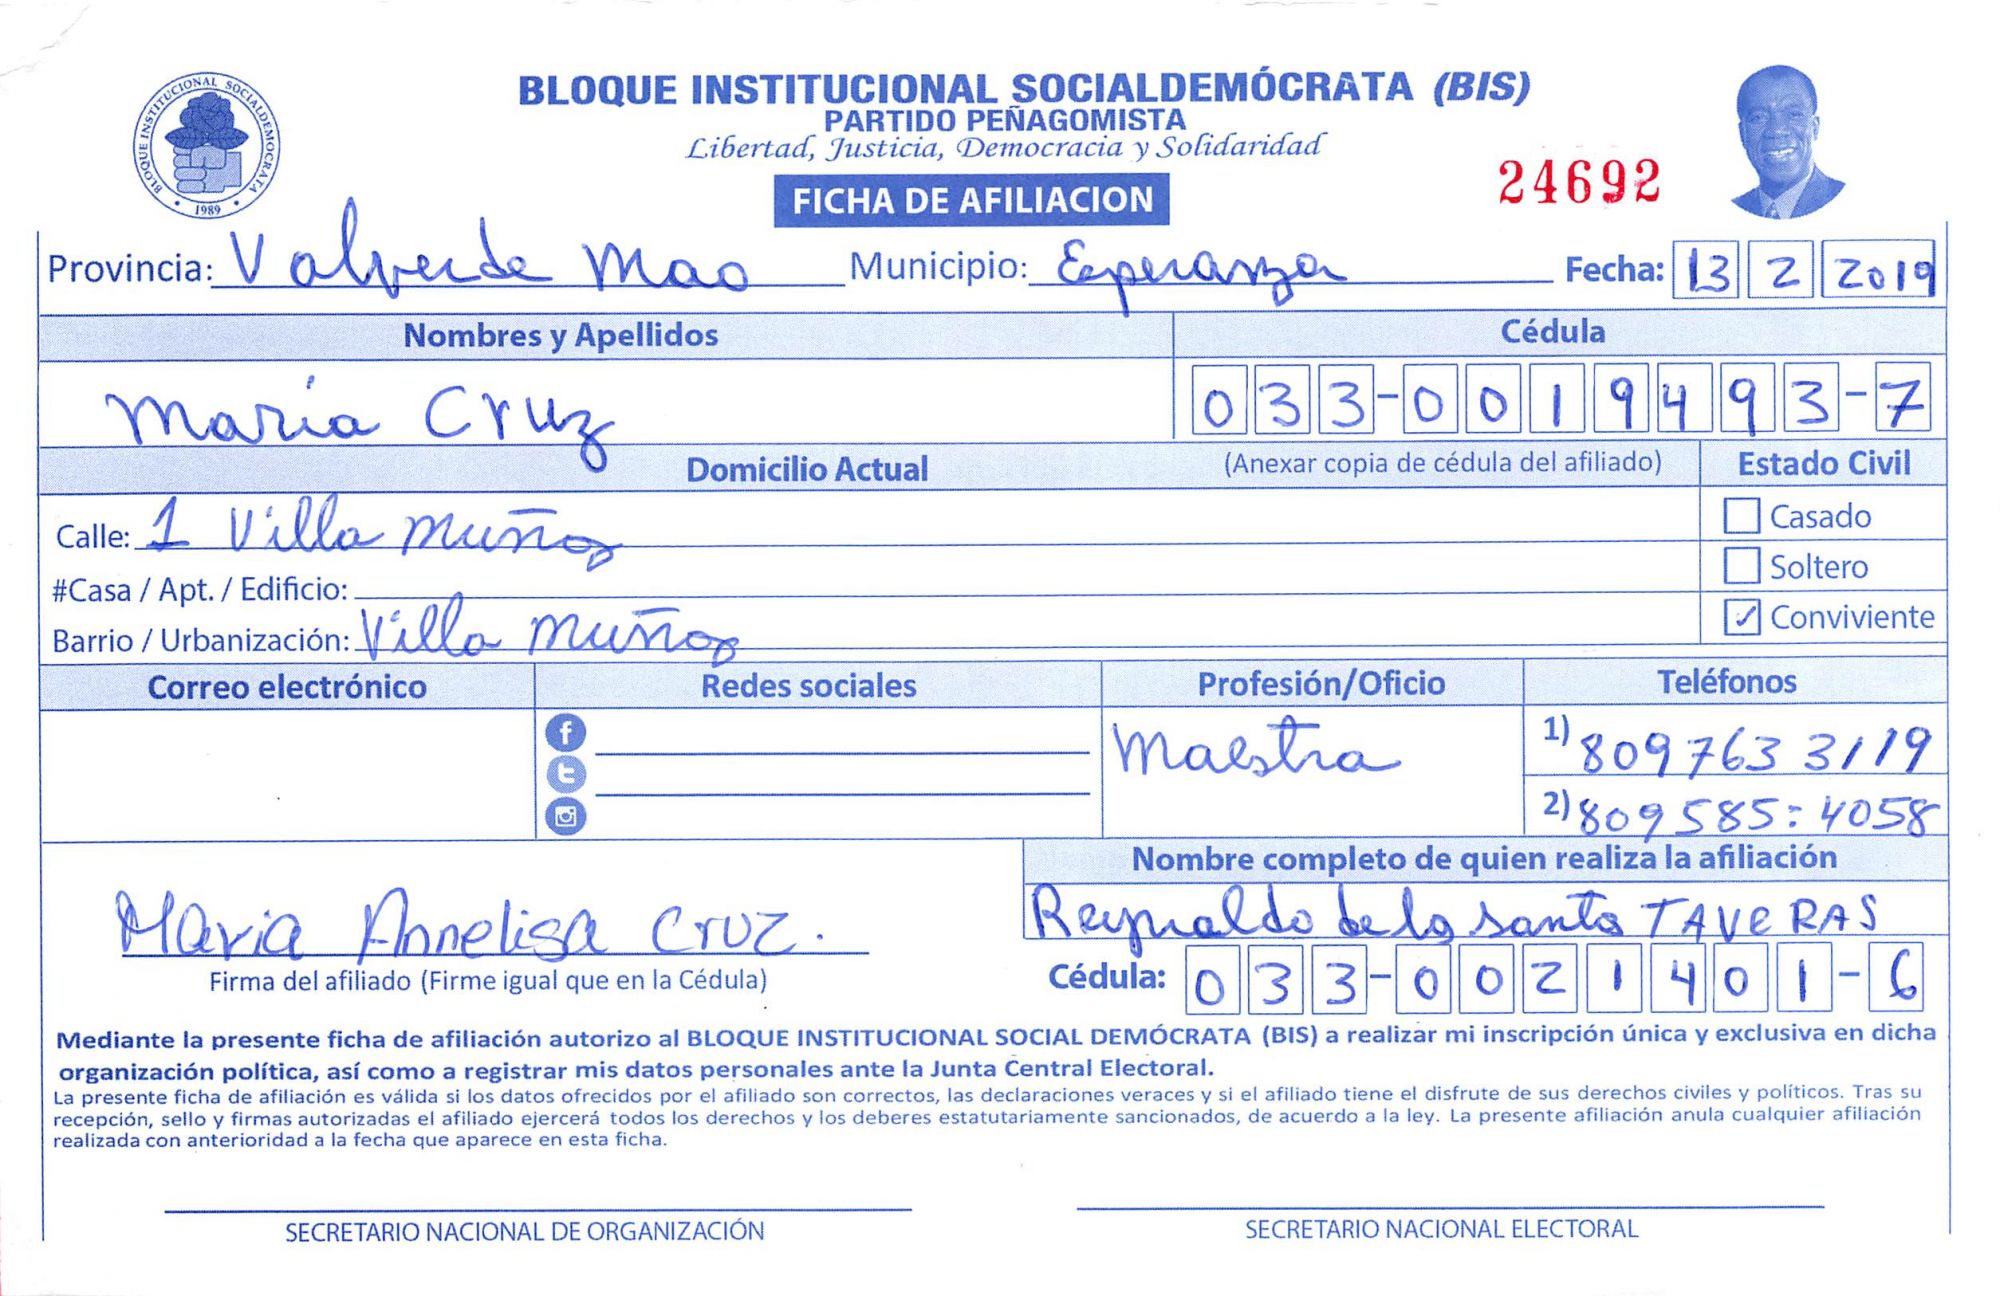 BLOQUE INSTITUCIONAL SOCIALDEMOCRATA
1989
BLOQUE INSTITUCIONAL SOCIALDEMÓCRATA (BIS)
PARTIDO PEÑAGOMISTA
Libertad, Justicia, Democracia y Solidaridad
FICHA DE AFILIACION
24692
Provincia: Valverde Mao Municipio: Esperanza Fecha: 13 2 2019
Nombres y Apellidos Cédula
Maria Cruz 033-0019493-7
Domicilio Actual (Anexar copia de cédula del afiliado) Estado Civil
Calle: 1 Villa Muños Casado
#Casa / Apt. / Edificio: Soltero
Barrio / Urbanización: Villa Muños ✓ Conviviente
Correo electrónico Redes sociales Profesión/Oficio Teléfonos
Maestra 1) 809 763 3119
2) 809 585: 4058
Nombre completo de quien realiza la afiliación
Maria Annelisa Cruz. Reynaldo de los santos TAVERAS
Firma del afiliado (Firme igual que en la Cédula) Cédula: 033-0021401-6
Mediante la presente ficha de afiliación autorizo al BLOQUE INSTITUCIONAL SOCIAL DEMÓCRATA (BIS) a realizar mi inscripción única y exclusiva en dicha
organización política, así como a registrar mis datos personales ante la Junta Central Electoral.
La presente ficha de afiliación es válida si los datos ofrecidos por el afiliado son correctos, las declaraciones veraces y si el afiliado tiene el disfrute de sus derechos civiles y políticos. Tras su
recepción, sello y firmas autorizadas el afiliado ejercerá todos los derechos y los deberes estatutariamente sancionados, de acuerdo a la ley. La presente afiliación anula cualquier afiliación
realizada con anterioridad a la fecha que aparece en esta ficha.
SECRETARIO NACIONAL DE ORGANIZACIÓN SECRETARIO NACIONAL ELECTORAL